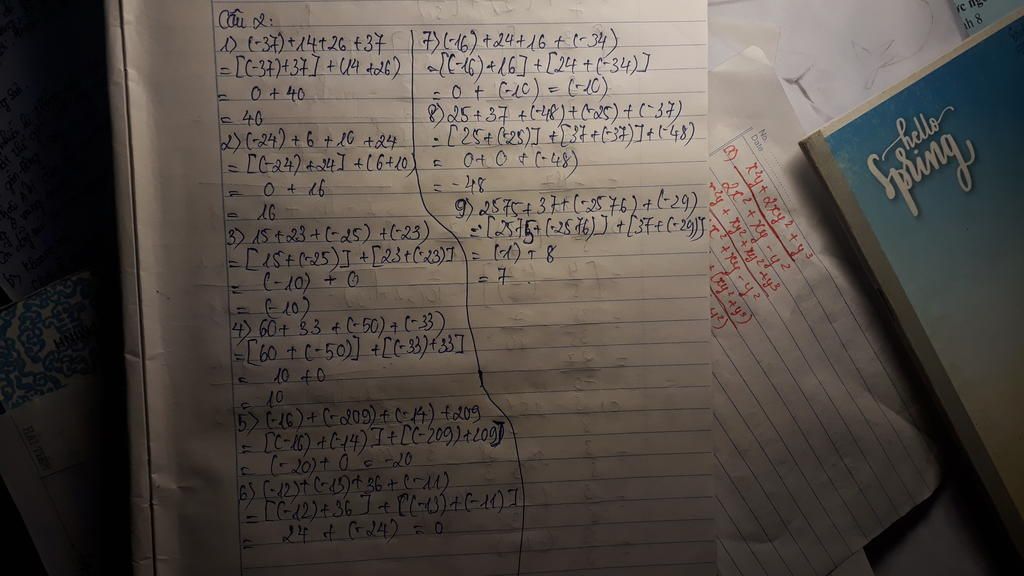 Câu 2:
1) (-37)+14+26+37
= [(-37)+37] + (14+26)
= 0 + 40
= 40
2) (-24) + 6 + 10 + 24
= [(-24) + 24] + (6+10
= 0 + 16
= 16
3) 15 + 23 + (-25) + (-23)
= [15+(-25)] + [23+(-23)]
= (-10) + 0
= (-10)
4) 60 + 33 + (-50) + (-33)
= [60 + (-50)] + [(-33)+33]
= 10 + 0
= 10
5) (-16) + (-209) + (-14) + 209
= [(-16) + (-14)] + [(-209)+209]
= (-20) + 0 = -20
6) (-12) + (-13) + 36 + (-11)
= [(-12) + 36] + [(-13) + (-11)]
= 24 + (-24) = 0
7) (-16) + 24 + 16 + (-34)
= [(-16) + 16] + [24 + (-34)]
= 0 + (-10) = (-10)
8) 25 + 37 + (-48) + (-25) + (-37)
= [25 + (-25)] + [37 + (-37)] + (-48)
= 0 + 0 + (-48)
= -48
9) 2575 + 37 + (-2576) + (-29)
= [2575 + (-2576)] + [37 + (-29)]
= (-1) + 8
= 7
hello
Spring